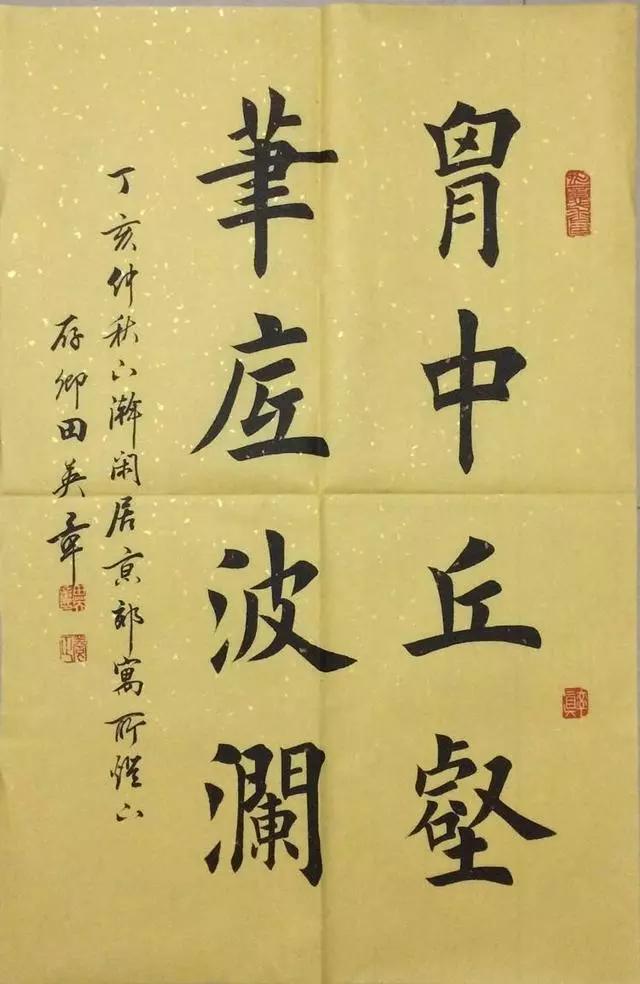 胷中丘壑
筆底波瀾
丁亥仲秋下澣闲居京郊寓所燈下
存卿田英章